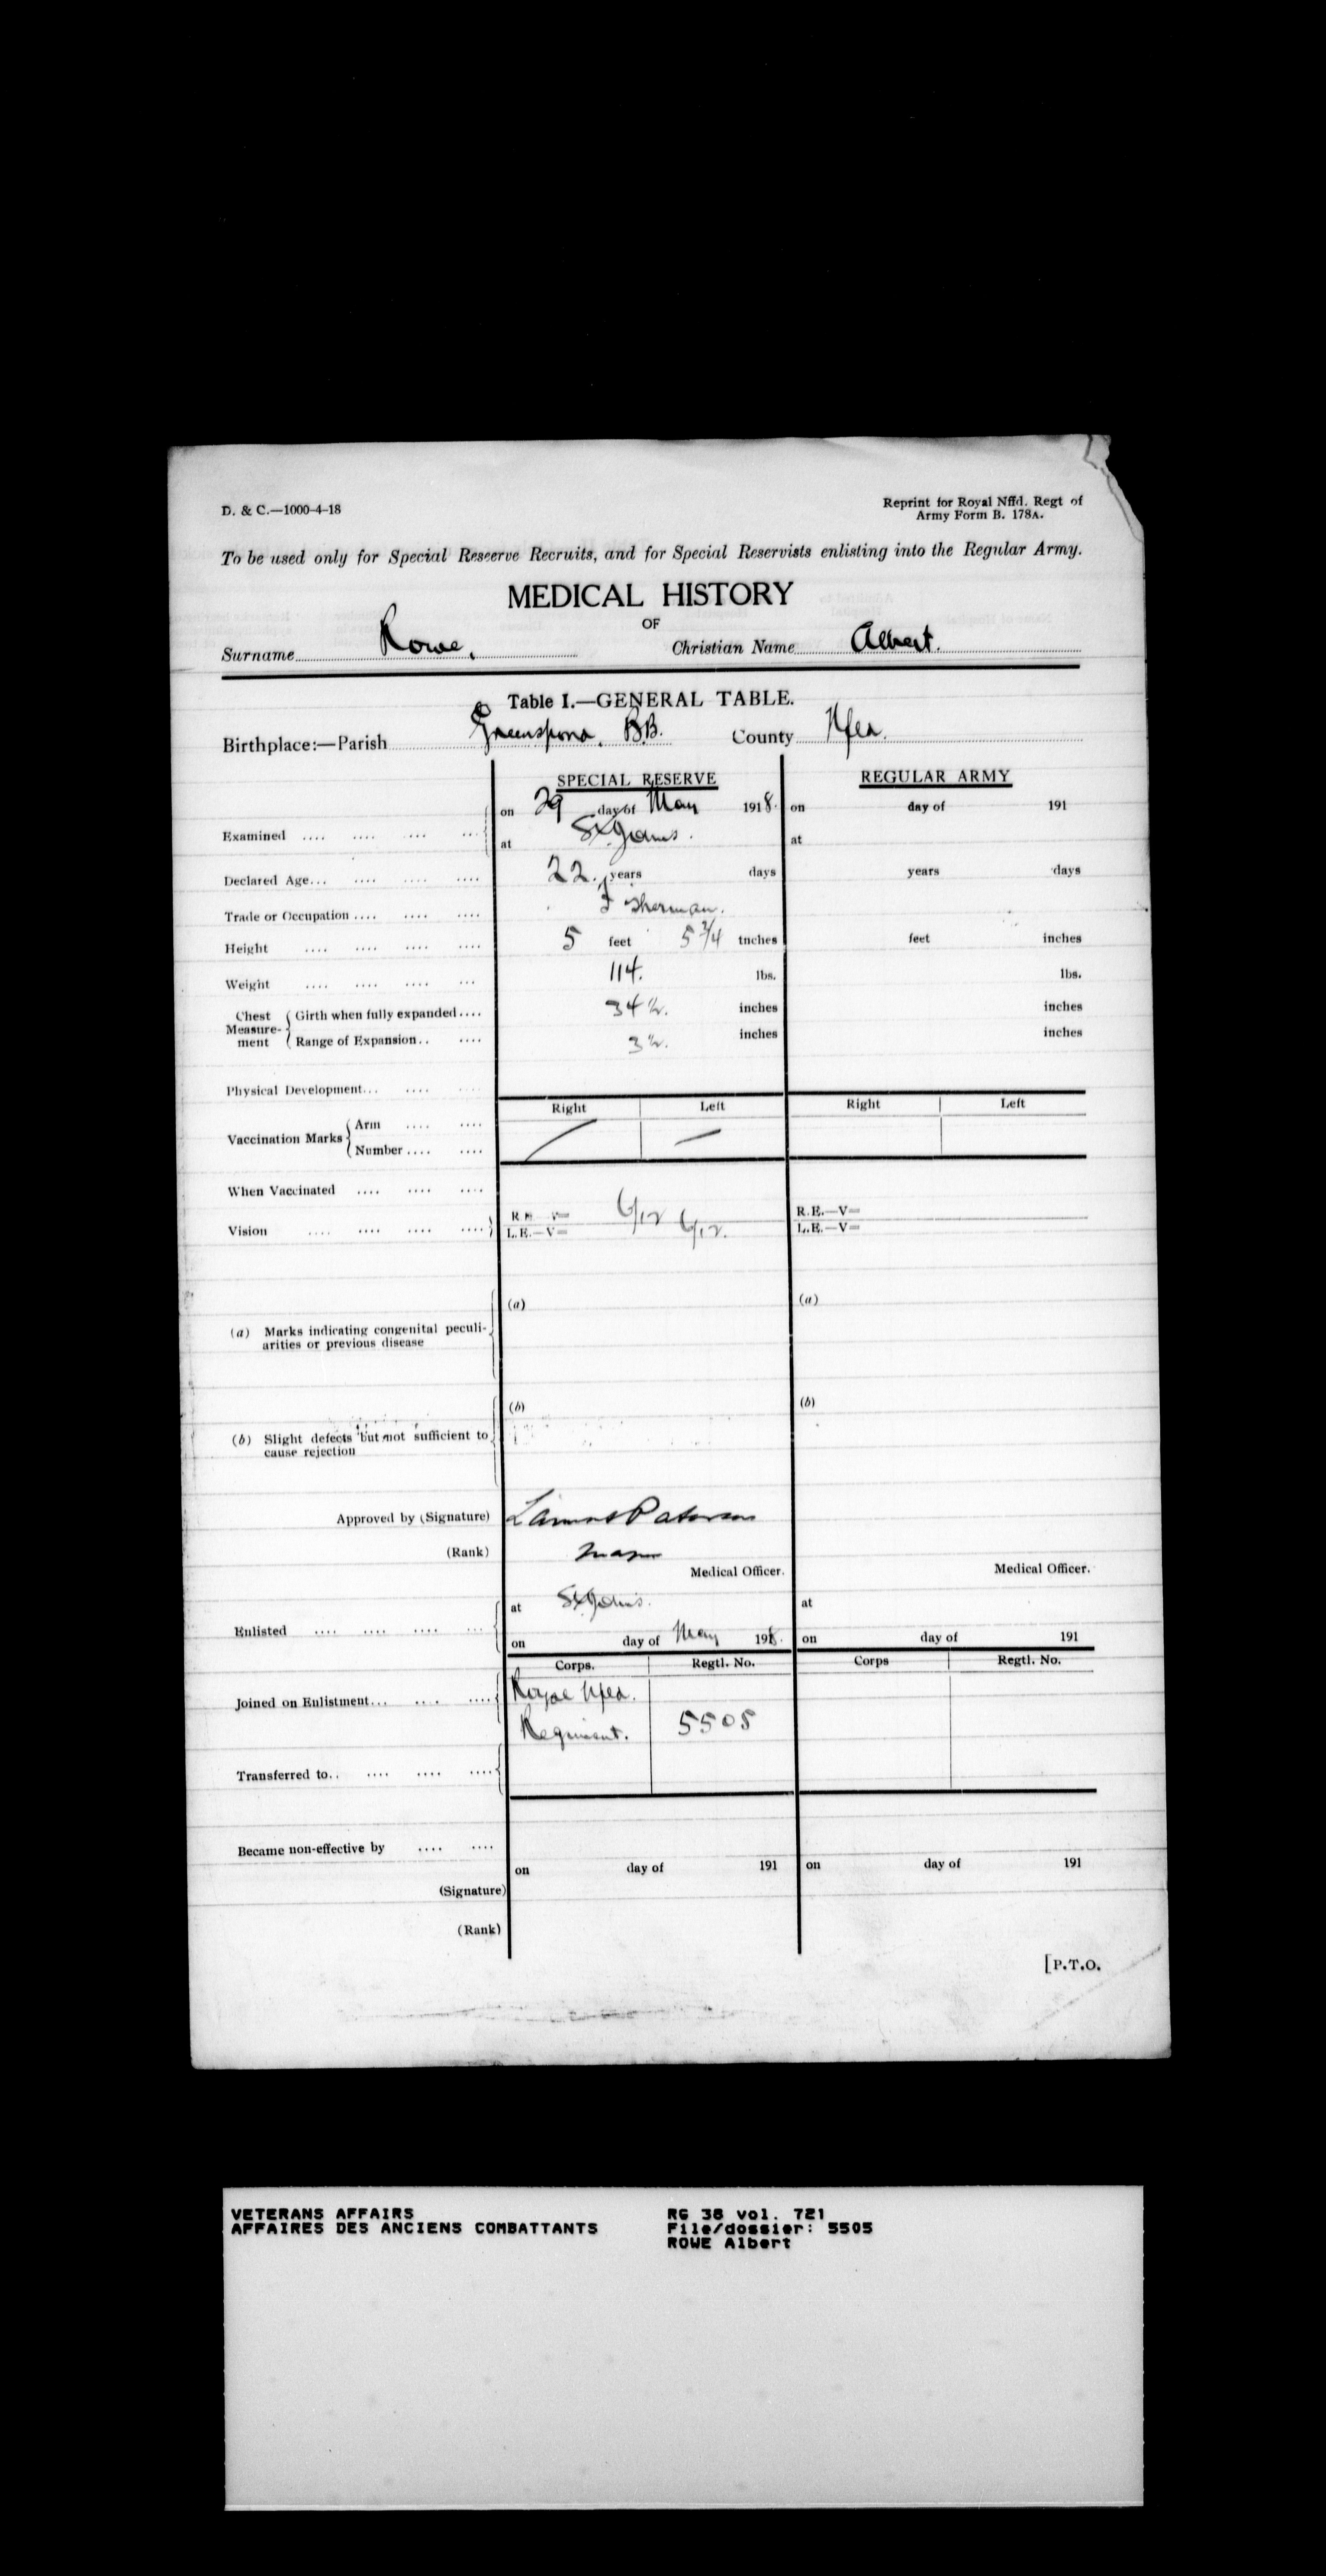 D. & C.—1000-4-18
Reprint for Royal Nffd. Regt of
Army Form B. 178A.
To be used only for Special Reserve Recruits, and for Special Reservists enlisting into the Regular Army.
MEDICAL HISTORY
OF
Surname Rowe. Christian Name Albert.
Table I.—GENERAL TABLE.
Birthplace:—Parish Greenspond. B.B. County Nfld.
SPECIAL RESERVE REGULAR ARMY
on 29 day of May 1918. on day of 191
Examined .... .... .... ...
at St Johns. at
Declared Age... .... .... .... 22. years days years days
Trade or Occupation .... .... .... Fisherman.
Height .... .... .... .... 5 feet 5 3/4 inches feet inches
Weight .... .... .... ... 114. lbs. lbs.
Chest Measurement Girth when fully expanded .... 34 1/2. inches inches
Range of Expansion.. .... 3 1/2. inches inches
Physical Development... .... ....
Right Left Right Left
Vaccination Marks Arm .... ....
Number .... ....
When Vaccinated .... .... ....
Vision .... .... .... .... R.E.—V= 6/12 R.E.—V=
L.E.—V= 6/12. L.E.—V=
(a) (a)
(a) Marks indicating congenital peculi-
arities or previous disease
(b) (b)
(b) Slight defects but not sufficient to
cause rejection
Approved by (Signature) Lamont Paterson
(Rank) Major
Medical Officer. Medical Officer.
at St Johns. at
Enlisted .... .... .... ....
on day of May 1918. on day of 191
Corps. Regtl. No. Corps Regtl. No.
Joined on Enlistment... .... .... Royal Nfld.
Regiment. 5505
Transferred to.. .... .... ....
Became non-effective by .... ....
on day of 191 on day of 191
(Signature)
(Rank)
[P.T.O.
VETERANS AFFAIRS RG 38 vol. 721
AFFAIRES DES ANCIENS COMBATTANTS File/dossier: 5505
ROWE Albert